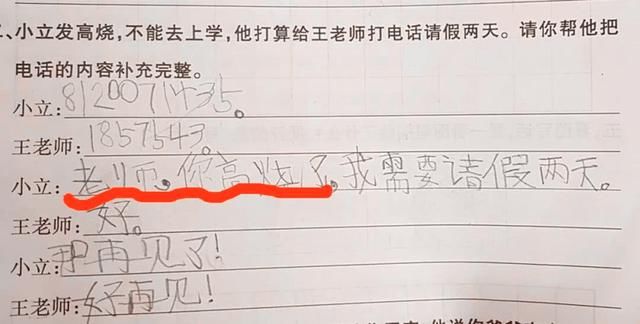 、小立发高烧，不能去上学，他打算给王老师打电话请假两天。请你帮他把
电话的内容补充完整。
小立：8120071435。
王老师：1857543。
小立：老师。你高烧了。我需要请假两天。
王老师：好。
小立：那再见了！
王老师：好再见！